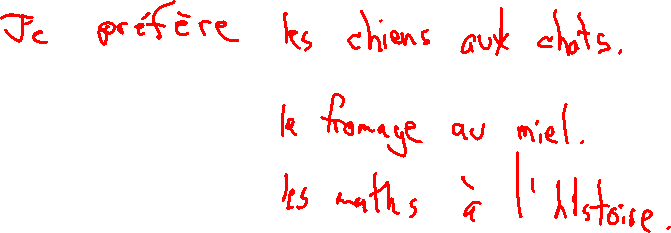 Je préfère les chiens aux chats.
le fromage au miel.
les maths à l'histoire.